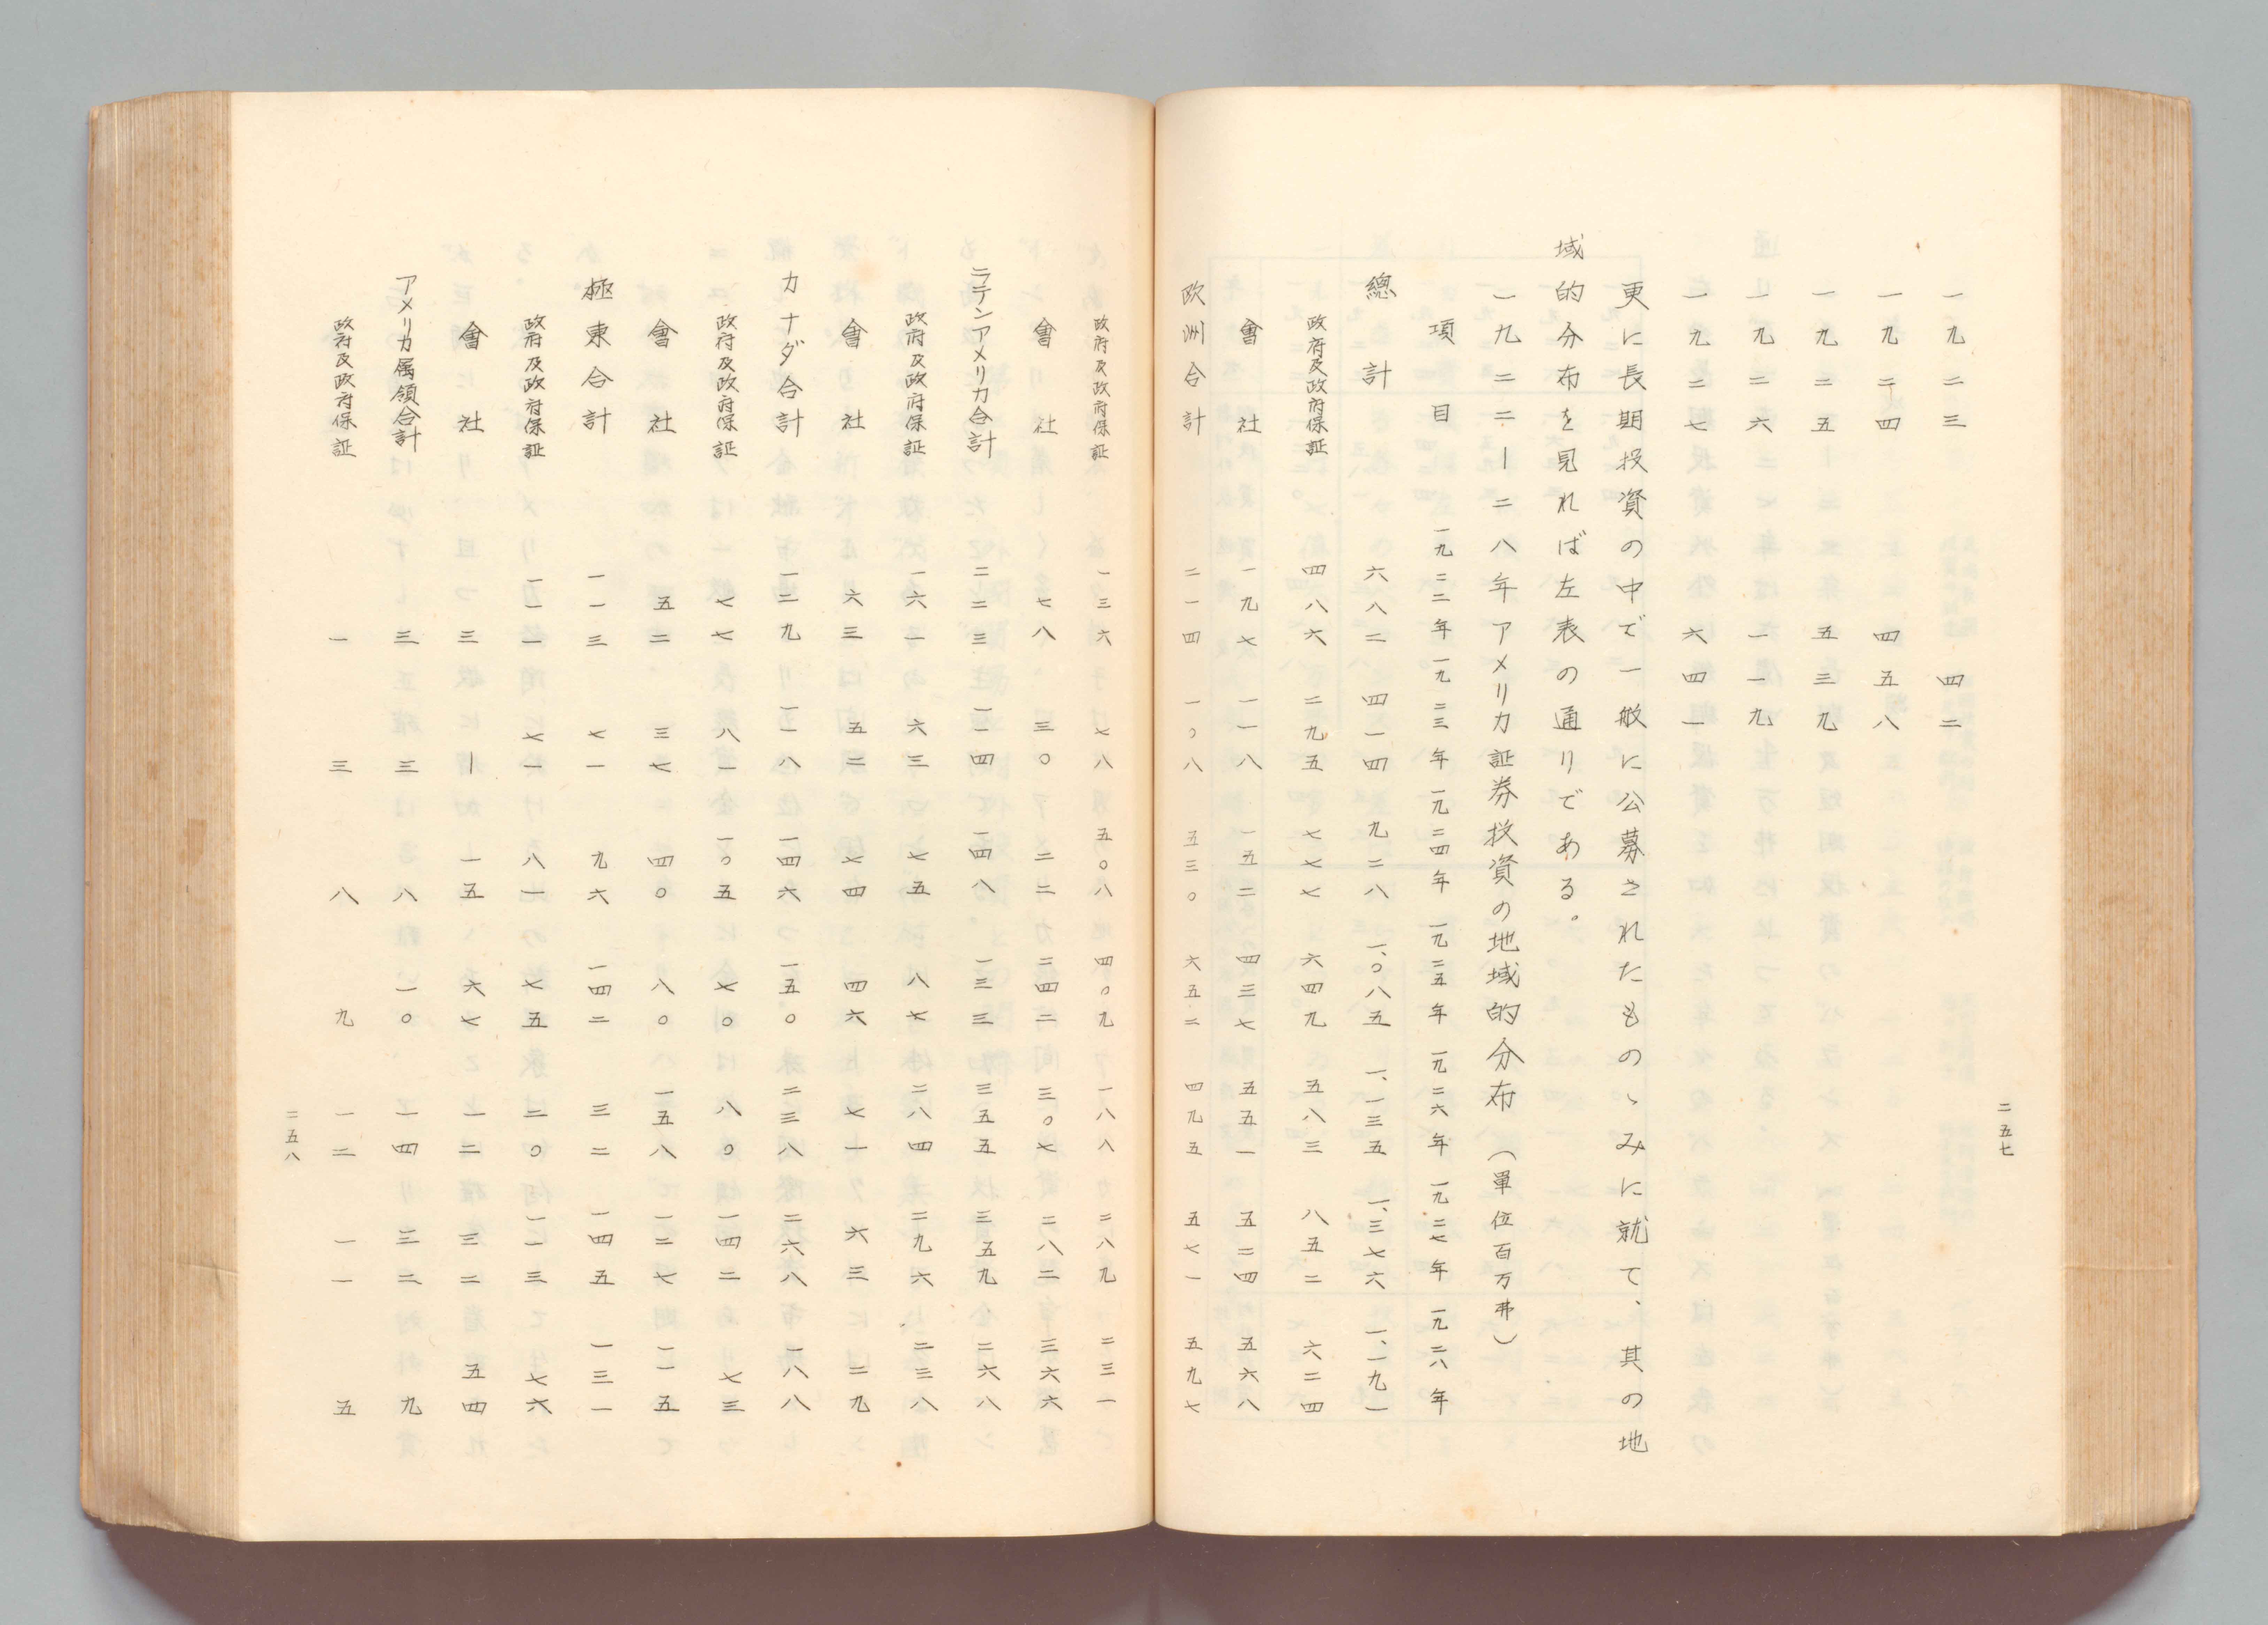 二五七
一九二三 四二
一九二四 四五八
一九二五 五三九
一九二六 一一九
一九二七 六四一
更に長期投資の中で一般に公募されたものゝみに就て、其の地
域的分布を見れば左表の通りである。
一九二二―二八年アメリカ証券投資の地域的分布(單位百万弗)
項目 一九二二年 一九二三年 一九二四年 一九二五年 一九二六年 一九二七年 一九二八年
總計 六八二 四一四 九二八 一、〇八五 一、一三五 一、三七六 一、一九一
政府及政府保証 四八六 二九五 七七七 六四九 五八三 八五二 六二四
會社 一九七 一一八 一五二 四三七 五五一 五二四 五六八
欧洲合計 二一四 一〇八 五三〇 六五二 四九五 五七一 五九七
政府及政府保証 一三六 七八 五〇八 四〇九 一八八 二八九 二三一
會社 七八 三〇 二二 二四二 三〇七 二八二 三六六
ラテンアメリカ合計 二二三 一一四 一四八 一三三 三五五 三五九 二六八
政府及政府保証 一六一 六三 七五 八七 二八四 二九六 二三八
會社 六三 五二 七四 四六 七一 六三 二九
カナダ合計 一二九 一一八 一四六 一五〇 二三八 二六八 一八八
政府及政府保証 七七 八一 一〇五 七〇 八〇 一四二 七三
會社 五二 三七 四〇 八〇 一五八 一二七 一一五
極東合計 一一三 七一 九六 一四二 三二 一四五 一三一
政府及政府保証 一一一 七一 八一 七五 二〇 一一三 七六
會社 三 ― 一五 六七 一二 三二 五四
アメリカ属領合計 三 三 八 一〇 一四 三二 九
政府及政府保証 一 三 八 九 一二 一一 五
二五八